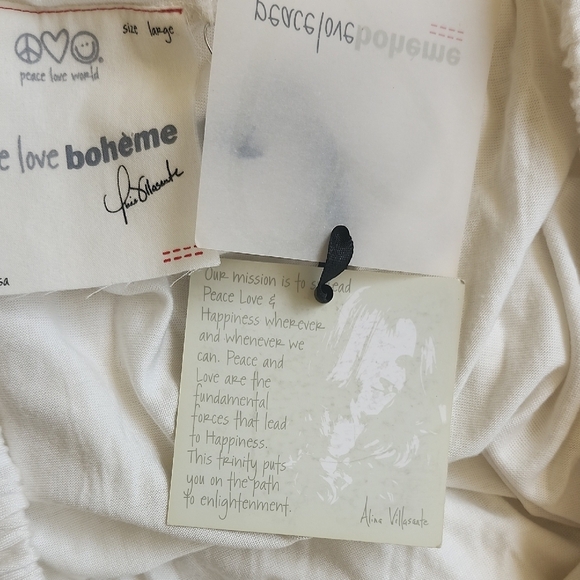 size large
peace love world
e love bohème
Alina Villasante
sa
peacelovebohème
Our mission is to s ead
Peace Love &
Happiness wherever
and whenever we
can. Peace and
Love are the
fundamental
forces that lead
to Happiness.
This trinity puts
you on the path
to enlightenment.
Alina Villasante